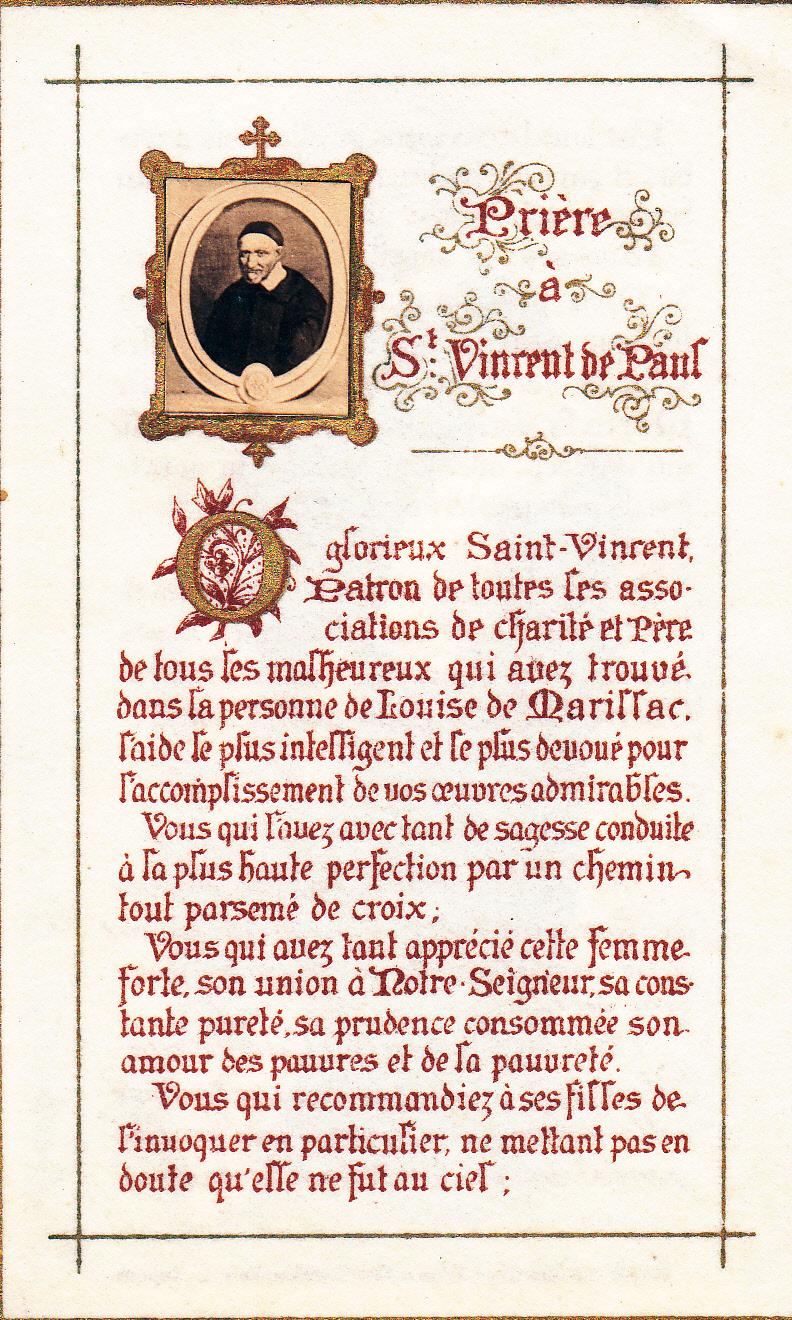 Prière
à
St. Vincent de Paul
O glorieux Saint-Vincent,
Patron de toutes les asso-
ciations de charité et Père
de tous les malheureux qui avez trouvé
dans la personne de Louise de Marillac,
l'aide le plus intelligent et le plus devoué pour
l'accomplissement de vos œuvres admirables.
Vous qui l'avez avec tant de sagesse conduite
à la plus haute perfection par un chemin
tout parsemé de croix;
Vous qui avez tant apprécié cette femme
forte, son union à Notre-Seigneur, sa cons-
tante pureté, sa prudence consommée son
amour des pauvres et de la pauvreté.
Vous qui recommandiez à ses filles de
l'invoquer en particulier, ne mettant pas en
doute qu'elle ne fut au ciel;